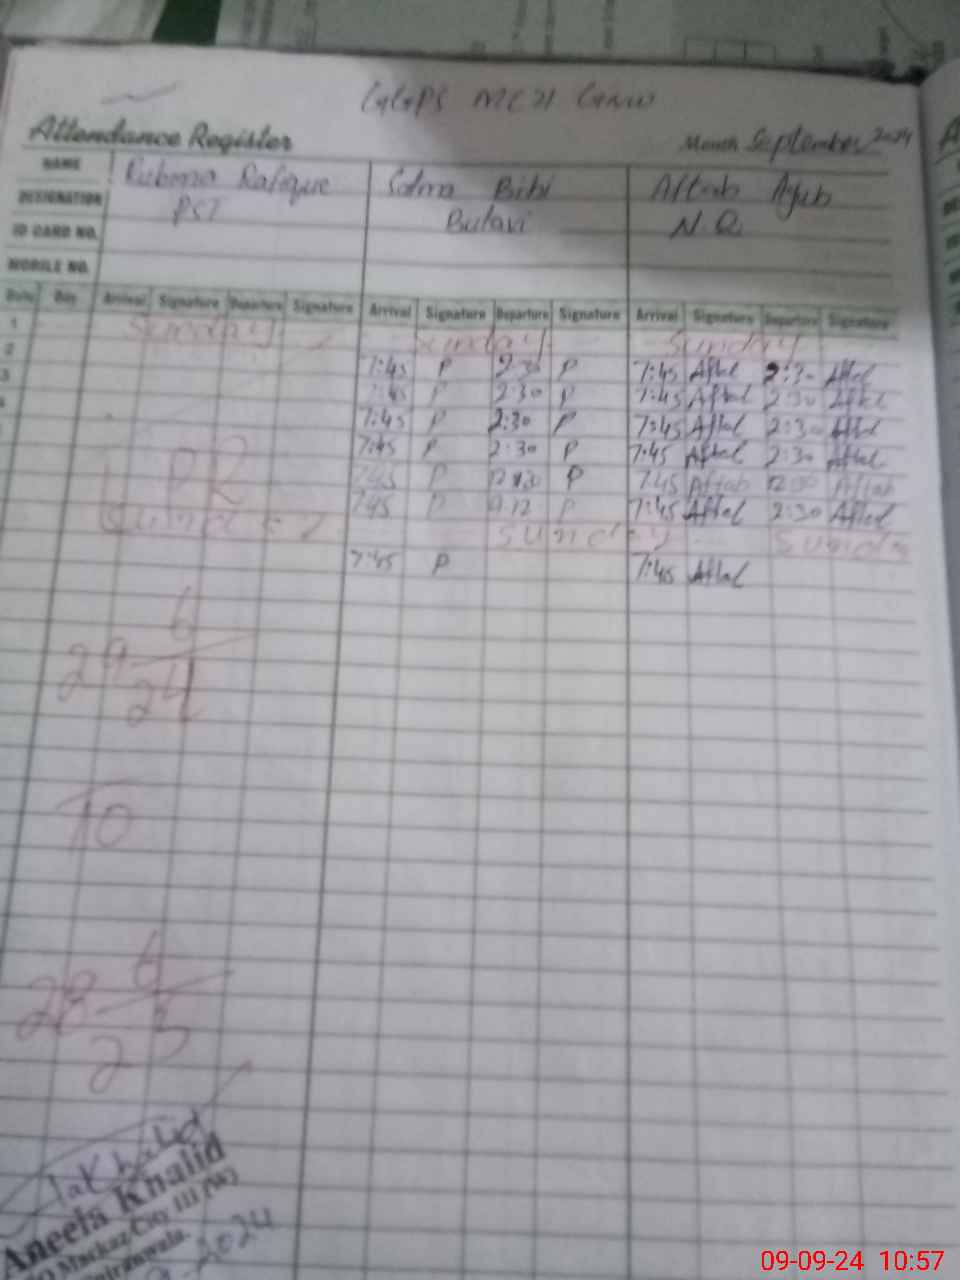 Attendance Register Month September 2024
NAME Rubina Rafique Salma Bibi Aftab Ayub
DESIGNATION PST Butavi N.Q.
ID CARD NO.
MOBILE NO.
Date Day Arrival Signature Departure Signature Arrival Signature Departure Signature Arrival Signature Departure Signature
1 Sunday Sunday Sunday
2 7:45 P 2:30 P 7:45 Aftab 2:30 Aftab
3 7:45 P 2:30 P 7:45 Aftab 2:30 Aftab
4 7:45 P 2:30 P 7:45 Aftab 2:30 Aftab
7:45 P 2:30 P 7:45 Aftab 2:30 Aftab
7:45 P 12:30 P 7:45 Aftab 12:30 Aftab
7:45 P P 7:45 Aftab 2:30 Aftab
Sunday Sunday
7:45 P 7:45 Aftab
29 6
24
10
28 6
23
Aneela Khalid
Markaz City III (W)
2024
09-09-24 10:57